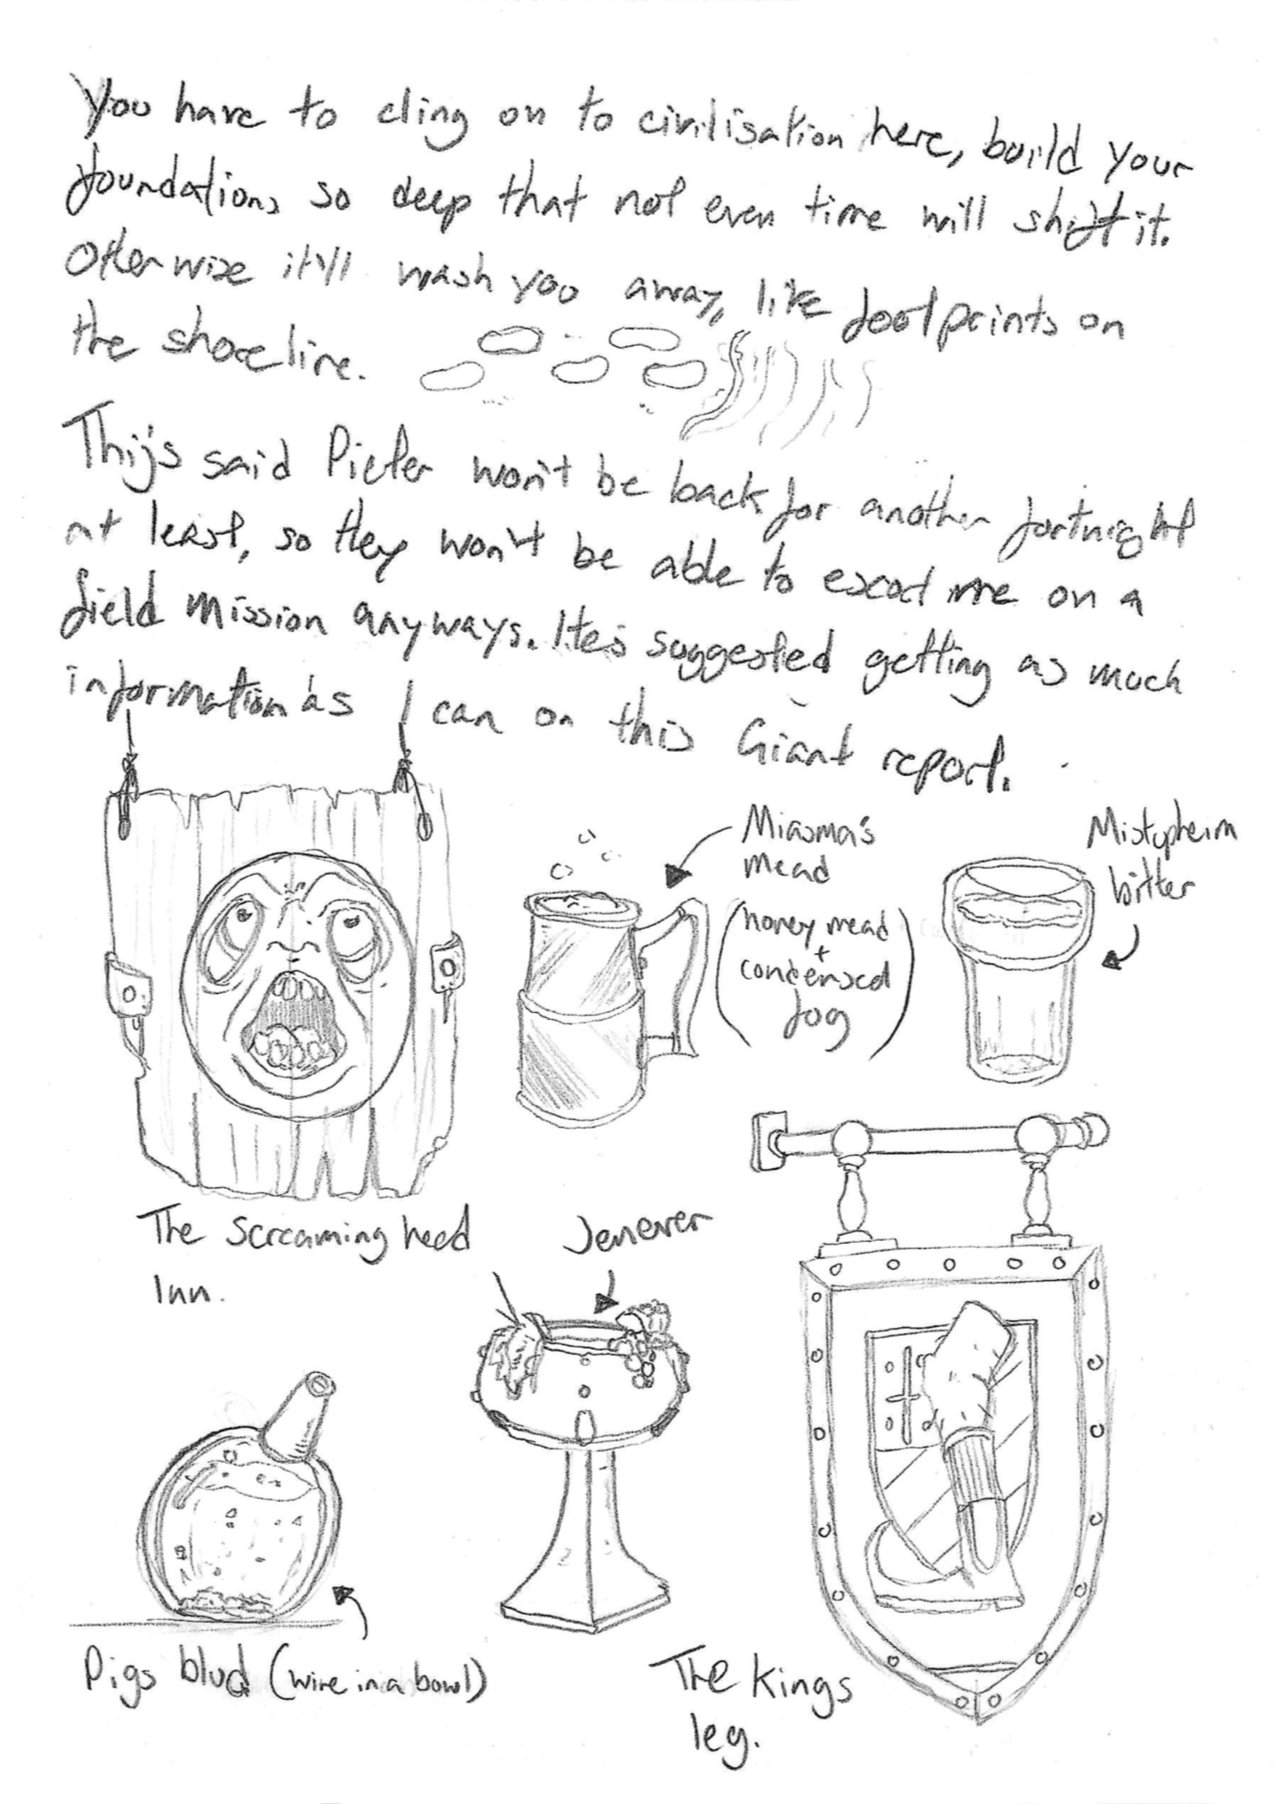 You have to cling on to civilisation here, build your
foundations so deep that not even time will shift it.
Otherwise it'll wash you away, like footprints on
the shoreline.
Thijs said Pieter won't be back for another fortnight
at least, so they won't be able to escort me on a
field mission anyways. He's suggested getting as much
information as I can on this Giant report.
Miasma's
mead
(honey mead
+
condensed
fog)
bitter
The Screaming head
Inn.
Jenever
Pigs blud (wine in a bowl)
The Kings
leg.